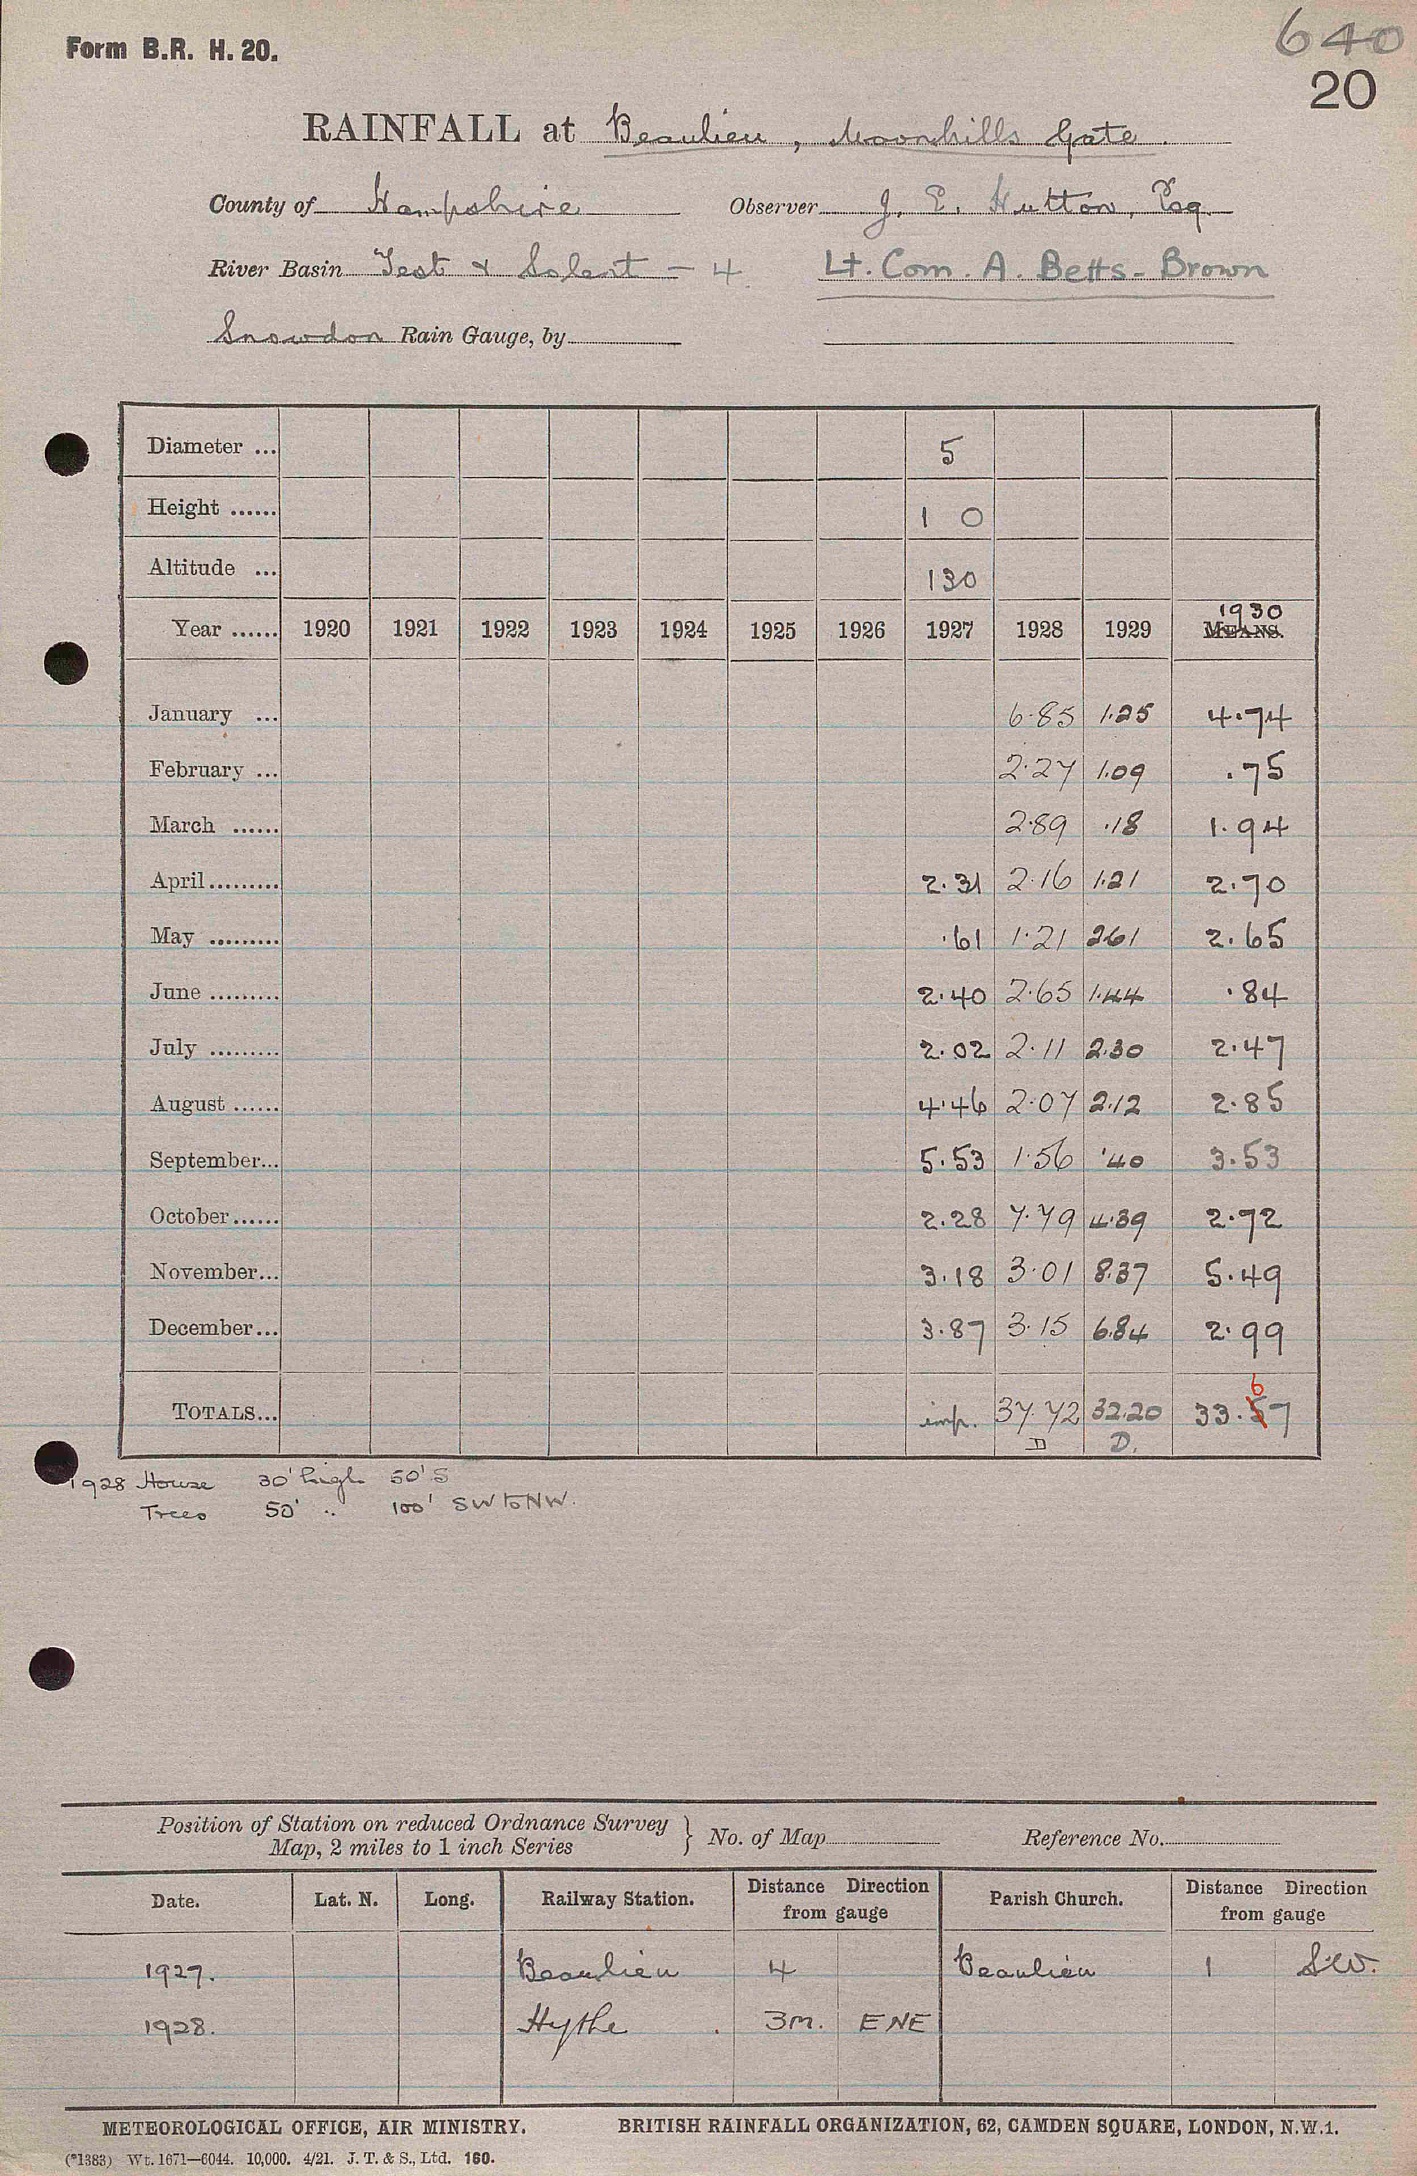 Form B.R. H. 20.
640
20
RAINFALL at Beaulieu, Moonhills Gate.
County of Hampshire Observer J. E. Hutton, Esq.
River Basin Test & Solent - 4 Lt. Com. A. Betts-Brown
Snowdon Rain Gauge, by
Diameter ... 5
Height ...... 1 0
Altitude ... 130
Year ...... 1920 1921 1922 1923 1924 1925 1926 1927 1928 1929 MEANS. 1930
January ... 6.85 1.25 4.74
February ... 2.27 1.09 .75
March ...... 2.89 .18 1.94
April ......... 2.31 2.16 1.21 2.70
May ......... .61 1.21 2.61 2.65
June ......... 2.40 2.65 1.44 .84
July ......... 2.02 2.11 2.30 2.47
August ...... 4.46 2.07 2.12 2.85
September... 5.53 1.56 .40 3.53
October ...... 2.28 7.79 4.39 2.72
November... 3.18 3.01 8.37 5.49
December... 3.87 3.15 6.84 2.99
6
TOTALS... imp. 37.72 32.20 33.57
D D.
1928 House 30' high 50' S
Trees 50' .. 100' SW to NW.
Position of Station on reduced Ordnance Survey
Map, 2 miles to 1 inch Series } No. of Map Reference No.
Date. Lat. N. Long. Railway Station. Distance Direction from gauge Parish Church. Distance Direction from gauge
1927. Beaulieu 4 Beaulieu 1 S.W.
1928. Hythe 3m. ENE
METEOROLOGICAL OFFICE, AIR MINISTRY. BRITISH RAINFALL ORGANIZATION, 62, CAMDEN SQUARE, LONDON, N.W.1.
(*1383) Wt. 1671—6044. 10,000. 4/21. J. T. & S., Ltd. 160.